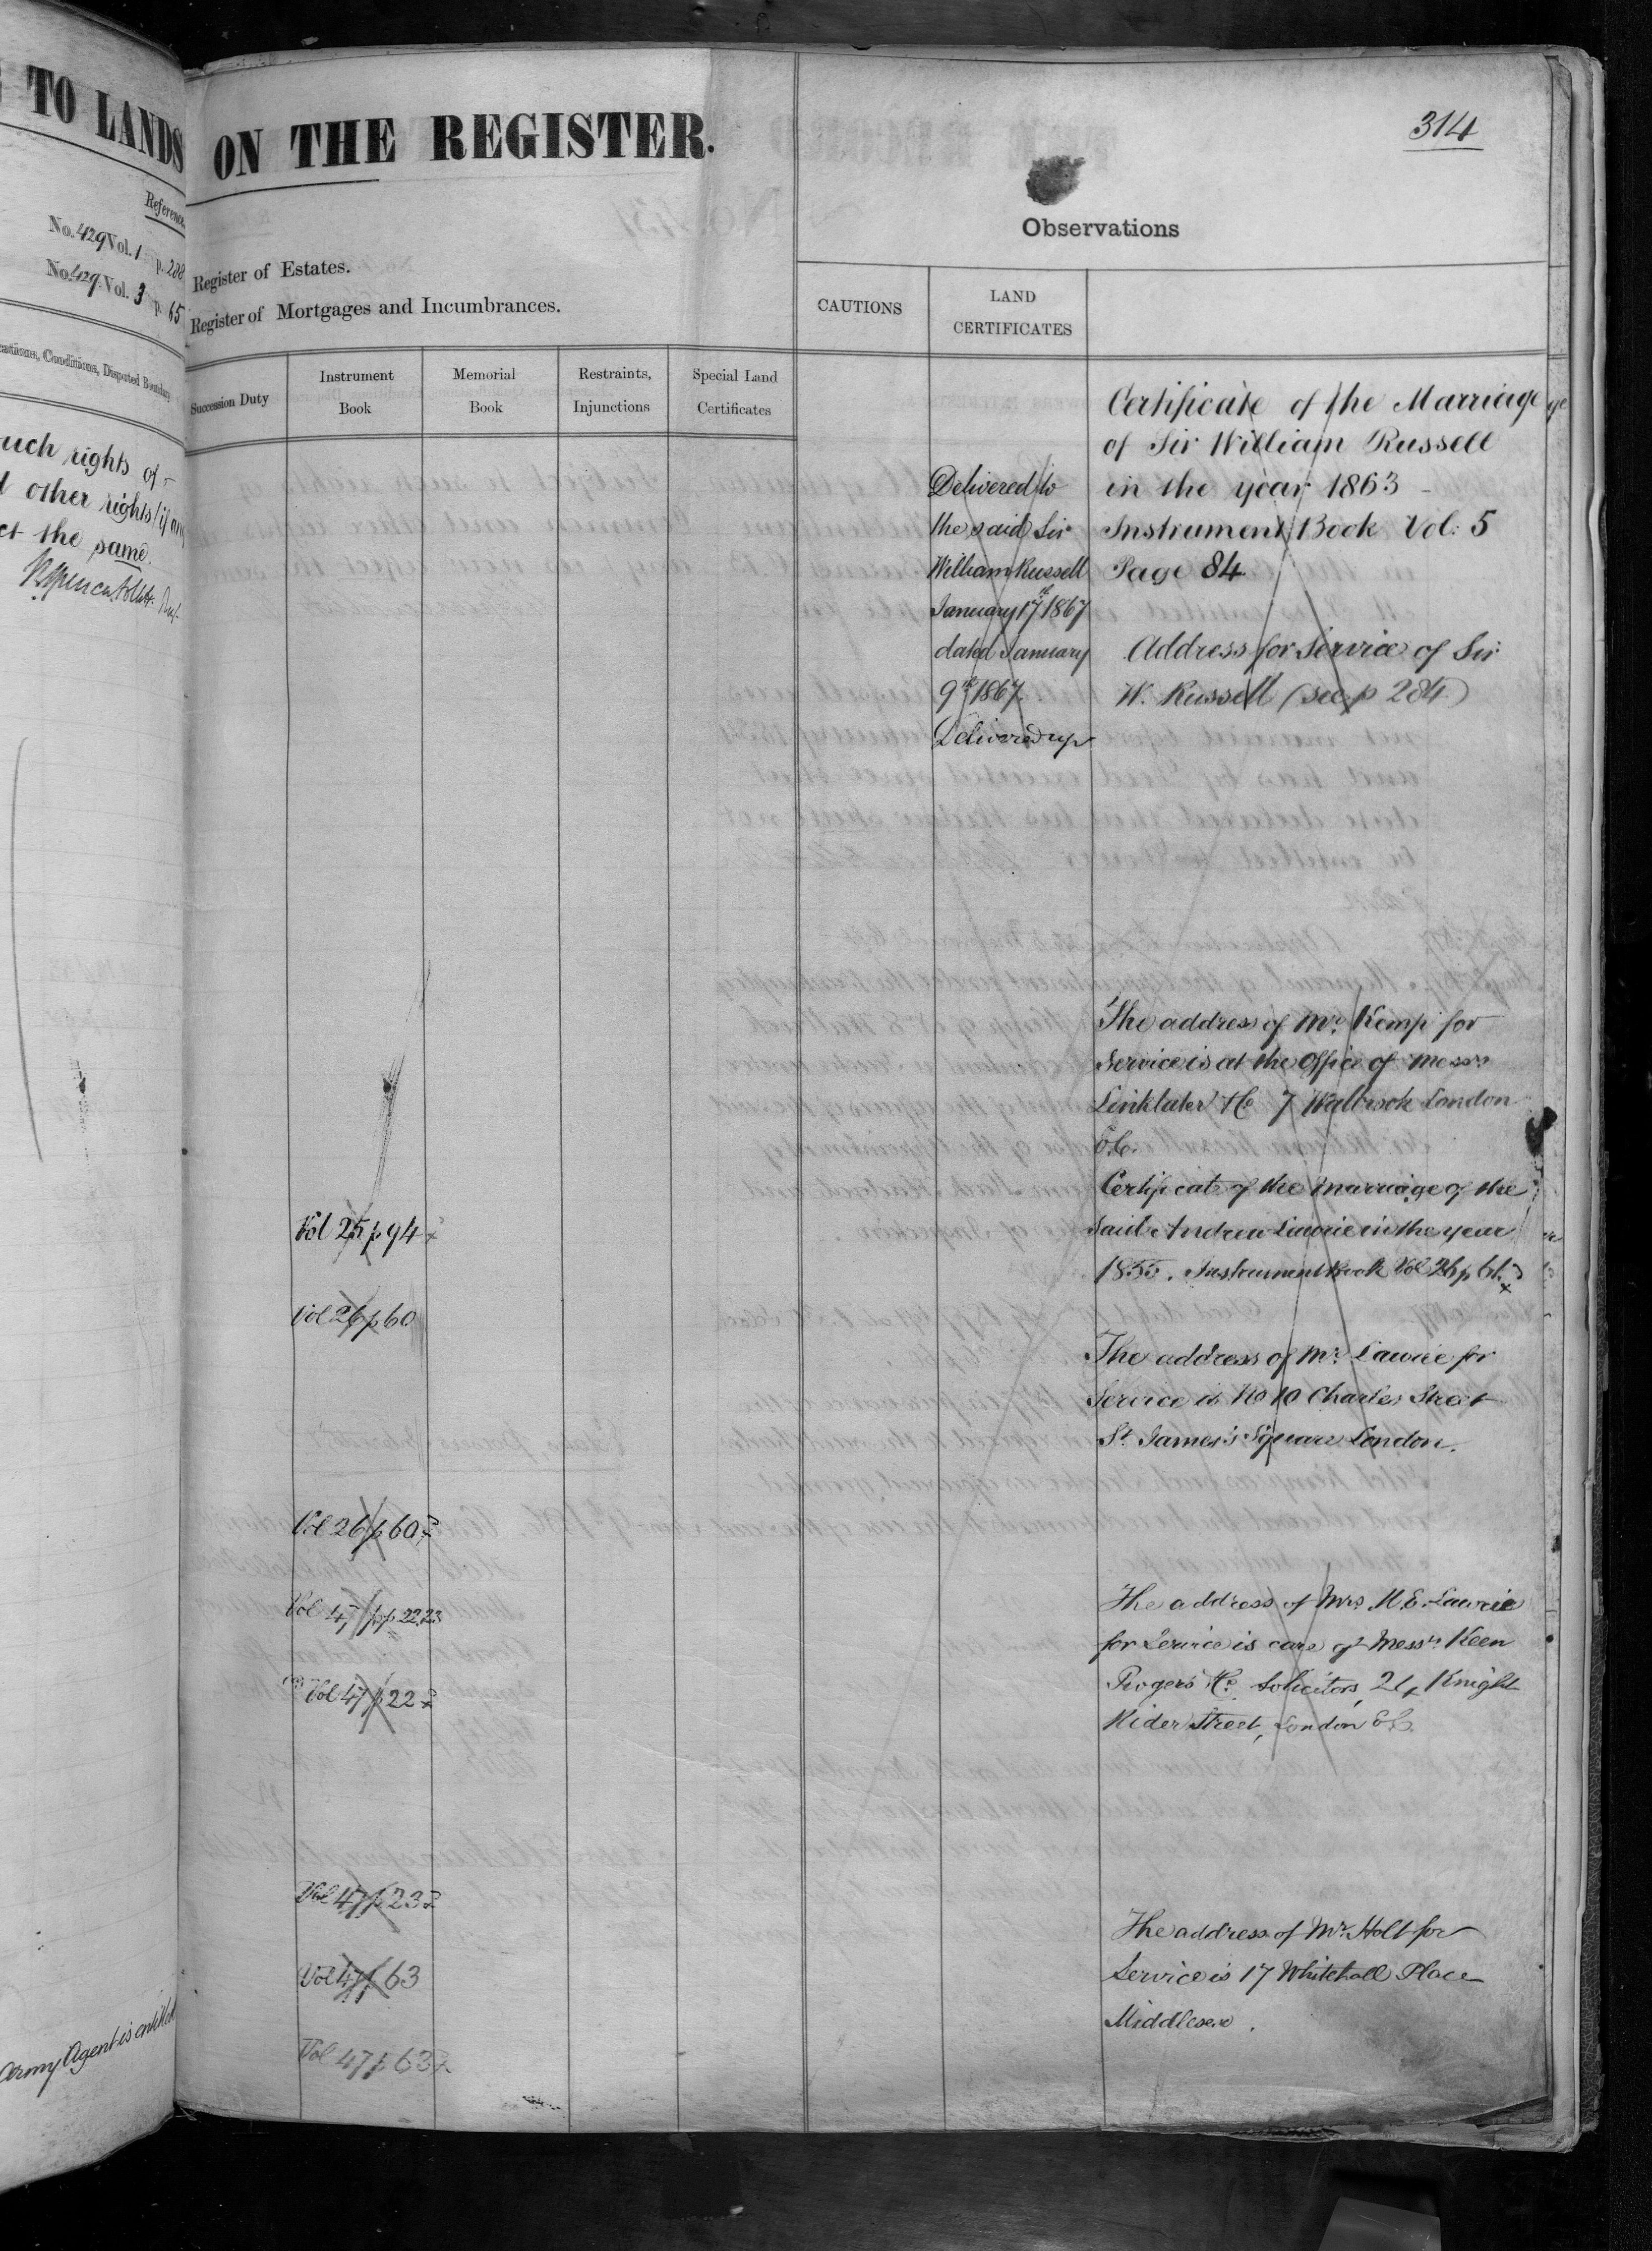 TO LANDS
Reference
No. 429 Vol. 1 p. 288
No. 429 Vol. 3 p. 65
Conditions, Disputed Boundary
such rights of
other rights (if any
the same.
Army Agent is entitled
ON THE REGISTER.
314
Observations
Register of Estates.
Register of Mortgages and Incumbrances.
CAUTIONS
LAND
CERTIFICATES
Succession Duty
Instrument
Book
Memorial
Book
Restraints,
Injunctions
Special Land
Certificates
Delivered to
the said Sir
William Russell
January 17th 1867
dated January
9th 1867.
Delivered up
Certificate of the Marriage
of Sir William Russell
in the year 1863
Instrument Book Vol: 5
Page 84
Address for Service of Sir
W. Russell (see p 284)
The address of Mr. Kemp for
Service is at the Office of Messrs
Linklater & Co 7 Walbrook London
E.C.
Certificate of the marriage of the
said Andrew Lawrie in the year
1855. Instrument Book Vol 26 p 61.
The address of Mr. Lawrie for
Service is No 10 Charles Street
St. James's Square London.
The address of Mrs M. E. Lawrie
for Service is care of Messrs Keen
Rogers & Co. Solicitors, 24 Knight
Rider Street, London E.C.
The address of Mr. Holt for
Service is 17 Whitehall Place
Middlesex.
Vol 25 p 94
Vol 26 p 60
Vol 26 p 60
Vol 47 pp 22.23
Vol 47 p 22
Vol 47 p 23
Vol 47 p 63
Vol 47 p 63